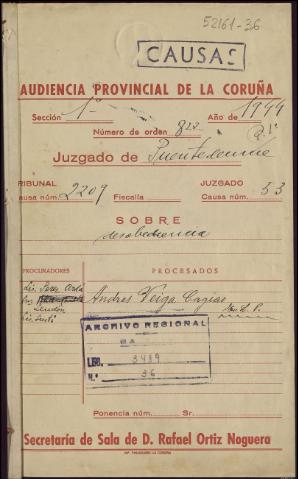 52161-36
CAUSAS
AUDIENCIA PROVINCIAL DE LA CORUÑA
Sección 1ª Año de 1944
Número de orden 822
Juzgado de Puentedeume
TRIBUNAL JUZGADO
Causa núm. 2209 Fiscalía Causa núm. 53
SOBRE
desobediencia
PROCURADORES PROCESADOS
Andres Veiga
ARCHIVO REGIONAL
GA
LEG. 3439
N.º 36
Ponencia núm. Sr.
Secretaría de Sala de D. Rafael Ortiz Noguera